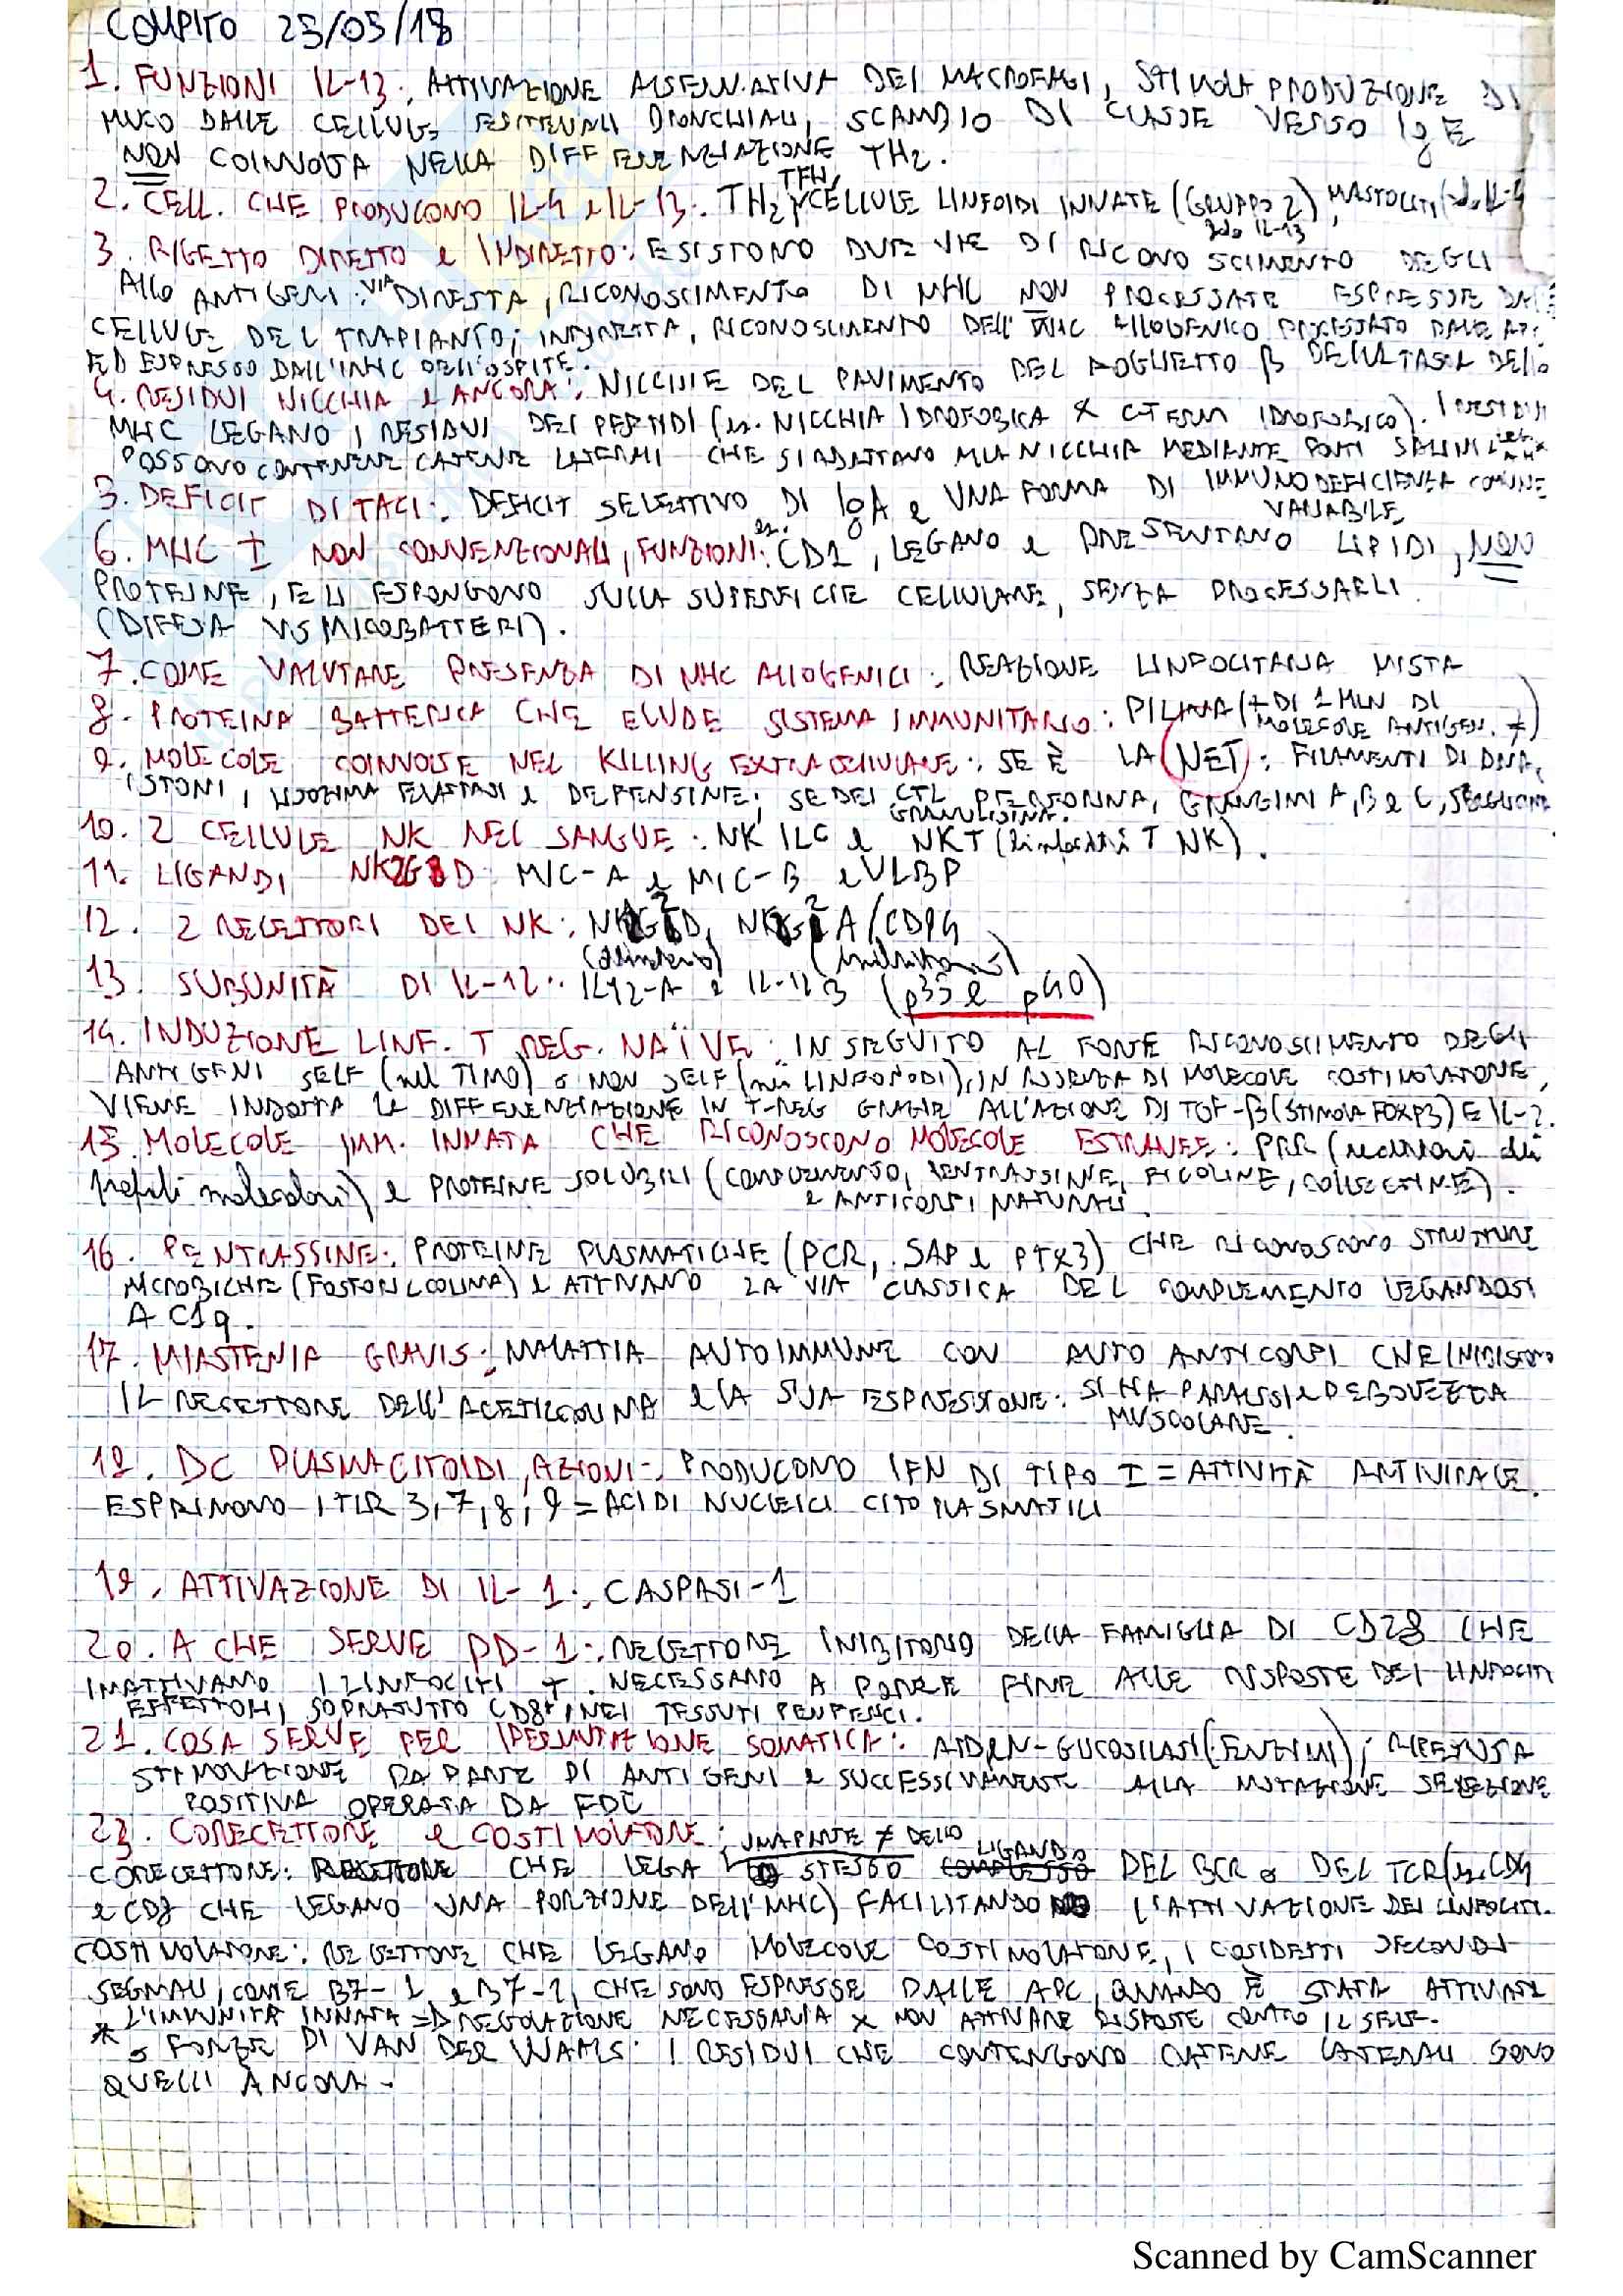 COMPITO 25/05/18
1. FUNZIONI IL-13: ATTIVAZIONE ALTERNATIVA DEI MACROFAGI, STIMOLA PRODUZIONE DI
MUCO DALLE CELLULE EPITELIALI BRONCHIALI, SCAMBIO DI CLASSE VERSO IgE
NON COINVOLTA NELLA DIFFERENZIAZIONE TH2.
2. CELL. CHE PRODUCONO IL-4 e IL-13: TH2, TFH, CELLULE LINFOIDI INNATE (GRUPPO 2) solo IL-13, MASTOCITI (solo IL-4
3. RIGETTO DIRETTO e INDIRETTO: ESISTONO DUE VIE DI RICONOSCIMENTO DEGLI
ALLO ANTIGENI: VIA DIRETTA, RICONOSCIMENTO DI MHC NON PROCESSATE ESPRESSE DA
CELLULE DEL TRAPIANTO; INDIRETTA, RICONOSCIMENTO DELL'MHC ALLOGENICO PROCESSATO DALLE
ED ESPRESSO DALL'MHC DELL'OSPITE.
4. RESIDUI NICCHIA e ANCORA: NICCHIE DEL PAVIMENTO DEL FOGLIETTO β DELLA TASCA DELLO
MHC LEGANO I RESIDUI DEI PEPTIDI (es. NICCHIA IDROFOBICA X C TERM IDROFOBICO). I RESIDUI
POSSONO CONTENERE CATENE LATERALI CHE SI ADATTANO ALLA NICCHIA MEDIANTE PONTI SALINI
5. DEFICIT DI TACI: DEFICIT SELETTIVO DI IgA e UNA FORMA DI IMMUNODEFICIENZA COMUNE
VARIABILE
6. MHC I NON CONVENZIONALI, FUNZIONI: es. CD1, LEGANO e PRESENTANO LIPIDI, NON
PROTEINE, E LI ESPONGONO SULLA SUPERFICIE CELLULARE, SENZA PROCESSARLI
(DIFESA VS MICOBATTERI).
7. COME VALUTARE PRESENZA DI MHC ALLOGENICI: REAZIONE LINFOCITARIA MISTA
8. PROTEINA BATTERICA CHE ELUDE SISTEMA IMMUNITARIO: PILINA (+ DI 1 MLN DI
MOLECOLE ANTIGEN. ≠)
9. MOLECOLE COINVOLTE NEL KILLING EXTRACELLULARE: SE È LA NET: FILAMENTI DI DNA,
ISTONI, LISOZIMA ELASTASI e DEFENSINE; SE DEI CTL PERFORINA, GRANZIMI A, B e C,
GRANULISINA.
10. 2 CELLULE NK NEL SANGUE: NK ILC e NKT (linfociti T NK).
11. LIGANDI NKG2D: MIC-A e MIC-B e ULBP
12. 2 RECETTORI DEI NK: NKG2D, NKG2A/CD94
(attivatorio) (inibitorio)
13. SUBUNITÀ DI IL-12: IL12-A e IL-12B (p35 e p40)
14. INDUZIONE LINF. T REG. NAÏVE: IN SEGUITO AL FORTE RICONOSCIMENTO DEGLI
ANTIGENI SELF (nel TIMO) o NON SELF (nei LINFONODI), IN ASSENZA DI MOLECOLE COSTIMOLATORIE,
VIENE INDOTTA LA DIFFERENZIAZIONE IN T-REG GRAZIE ALL'AZIONE DI TGF-β (STIMOLA FOXP3) E IL-2.
15. MOLECOLE IMM. INNATA CHE RICONOSCONO MOLECOLE ESTRANEE: PRR (recettori di
profili molecolari) e PROTEINE SOLUBILI (COMPLEMENTO, PENTRASSINE, FICOLINE, COLLECTINE).
e ANTICORPI NATURALI.
16. PENTRASSINE: PROTEINE PLASMATICHE (PCR, SAP e PTX3) CHE riconoscono STRUTTURE
MICROBICHE (FOSFORILCOLINA) e ATTIVANO LA VIA CLASSICA DEL COMPLEMENTO LEGANDOSI
A C1q.
17. MIASTENIA GRAVIS: MALATTIA AUTOIMMUNE CON AUTO ANTICORPI CHE INIBISCONO
IL RECETTORE DELL'ACETILCOLINA e LA SUA ESPRESSIONE: SI HA PARALISI e DEBOLEZZA
MUSCOLARE.
18. DC PLASMACITOIDI, AZIONI: PRODUCONO IFN DI TIPO I = ATTIVITÀ ANTIVIRALE.
ESPRIMONO I TLR 3, 7, 8, 9 = ACIDI NUCLEICI CITOPLASMATICI
19. ATTIVAZIONE DI IL-1: CASPASI-1
20. A CHE SERVE PD-1: RECETTORE INIBITORIO DELLA FAMIGLIA DI CD28 CHE
INATTIVANO I LINFOCITI T. NECESSARIO A PORRE FINE ALLE RISPOSTE DEI LINFOCITI
EFFETTORI, SOPRATUTTO CD8+, NEI TESSUTI PERIFERICI.
21. COSA SERVE PER IPERMUTAZIONE SOMATICA: AID e N-GLICOSILASI (ENZIMI); RIPETUTA
STIMOLAZIONE DA PARTE DI ANTIGENI e SUCCESSIVAMENTE ALLA MUTAZIONE SELEZIONE
POSITIVA OPERATA DA FDC
22. CORECETTORE e COSTIMOLATORE:
CORECETTORE: RECETTORE CHE LEGA UNA PARTE ≠ DELLO STESSO LIGANDO DEL BCR o DEL TCR (es. CD4
e CD8 CHE LEGANO UNA PORZIONE DELL'MHC) FACILITANDO L'ATTIVAZIONE DEI LINFOCITI.
COSTIMOLATORE: RECETTORE CHE LEGANO MOLECOLE COSTIMOLATORIE, I COSIDETTI SECONDI
SEGNALI, COME B7-1 e B7-2, CHE SONO ESPRESSE DALLE APC QUANDO È STATA ATTIVATA
L'IMMUNITÀ INNATA => REGOLAZIONE NECESSARIA X NON ATTIVARE RISPOSTE CONTRO IL SELF.
* o FORZE DI VAN DER WAALS: I RESIDUI CHE CONTENGONO CATENE LATERALI SONO
QUELLI ANCORA.
Scanned by CamScanner